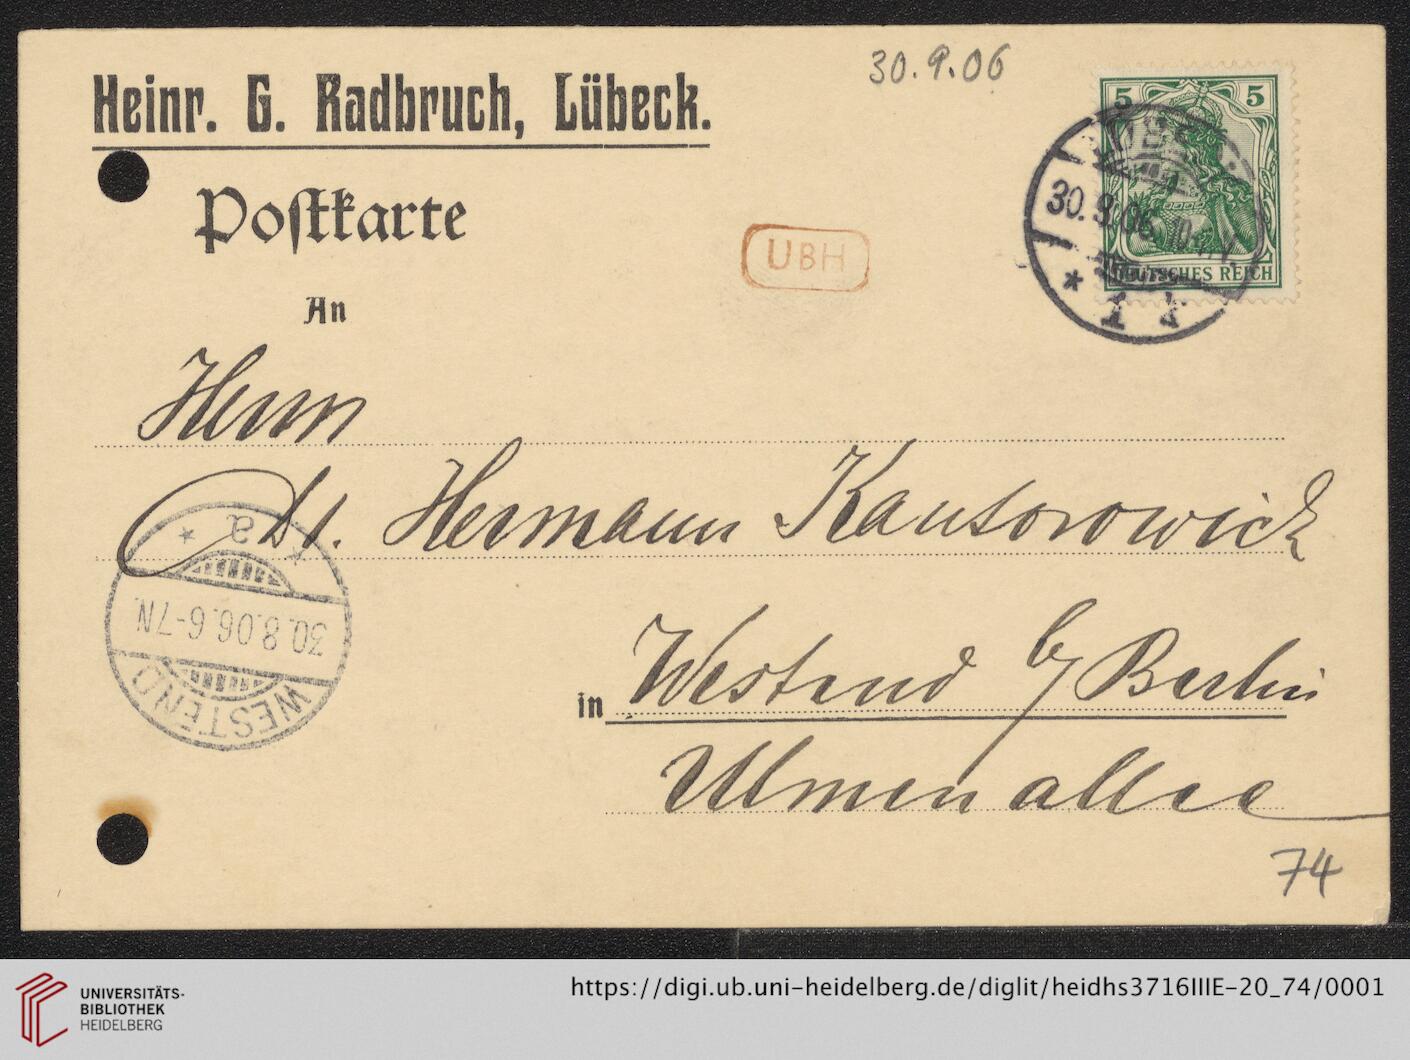 30.9.06
Heinr. G. Radbruch, Lübeck.
5 5
DEUTSCHES REICH
30.9.06.10-11V.
* 1 k
Poſtkarte
UBH
An
Herrn
Dr. Hermann Kantorowicz
* a *
30.8.06.6-7N.
WESTEND
in Westend b/ Berlin
Ulmenallee
74
UNIVERSITÄTS-
BIBLIOTHEK
HEIDELBERG
https://digi.ub.uni-heidelberg.de/diglit/heidhs3716IIIE-20_74/0001